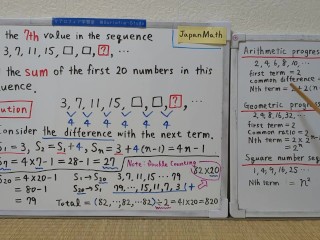 the 7th value in the sequence
3, 7, 11, 15, □, □, ?, …
the sum of the first 20 numbers in this
uence.
ution
3, 7, 11, 15, □, □, ?, …
4 4 4 4 4 4
Consider the difference with the next term.
S1 = 3, S2 = S1 + 4, Sn = 3 + 4(n-1) = 4n-1
S7 = 4×7-1 = 28-1 = 27
Note: Double Counting
82×20
S20 = 4×20-1
= 80-1
= 79
S1 → S20 3, 7, 11, 15 … 79
S20 → S1 79, …, 15, 11, 7, 3 (+
Total = (82, …, 82, …82) ÷ 2 = 41×20 = 820
JapanMath
Arithmetic progres
2, 4, 6, 8, 10, …
first term = 2
Common
Nth term = 2+2(n-
Geometric progres
2, 4, 8, 16, 32, …
first term = 2
Common ratio = 2
Nth term = 2×2
= 2ⁿ
Square number seq
1, 4, 9, 16, 25, …
Nth term = n²